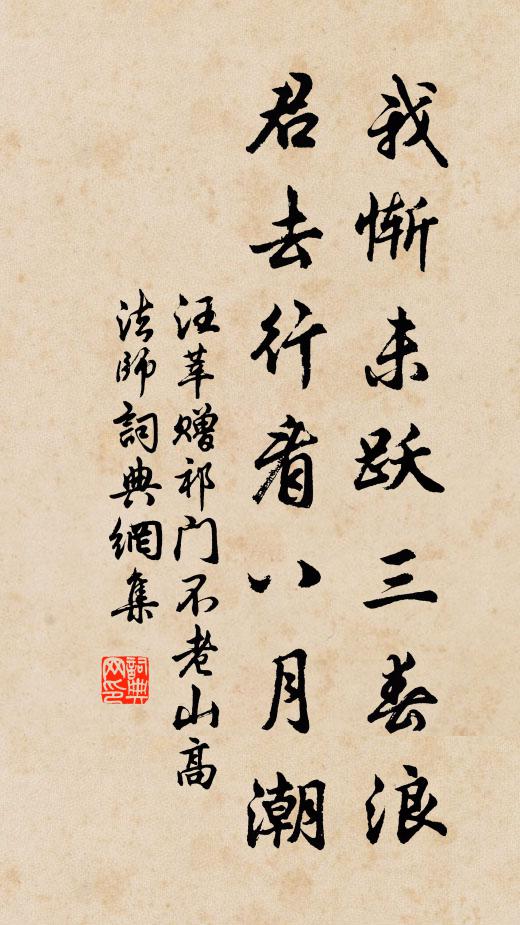 我惭未跃三春浪
君去行看八月潮
汪莘赠祁门不老山高
法师詞典網集
詞典网印